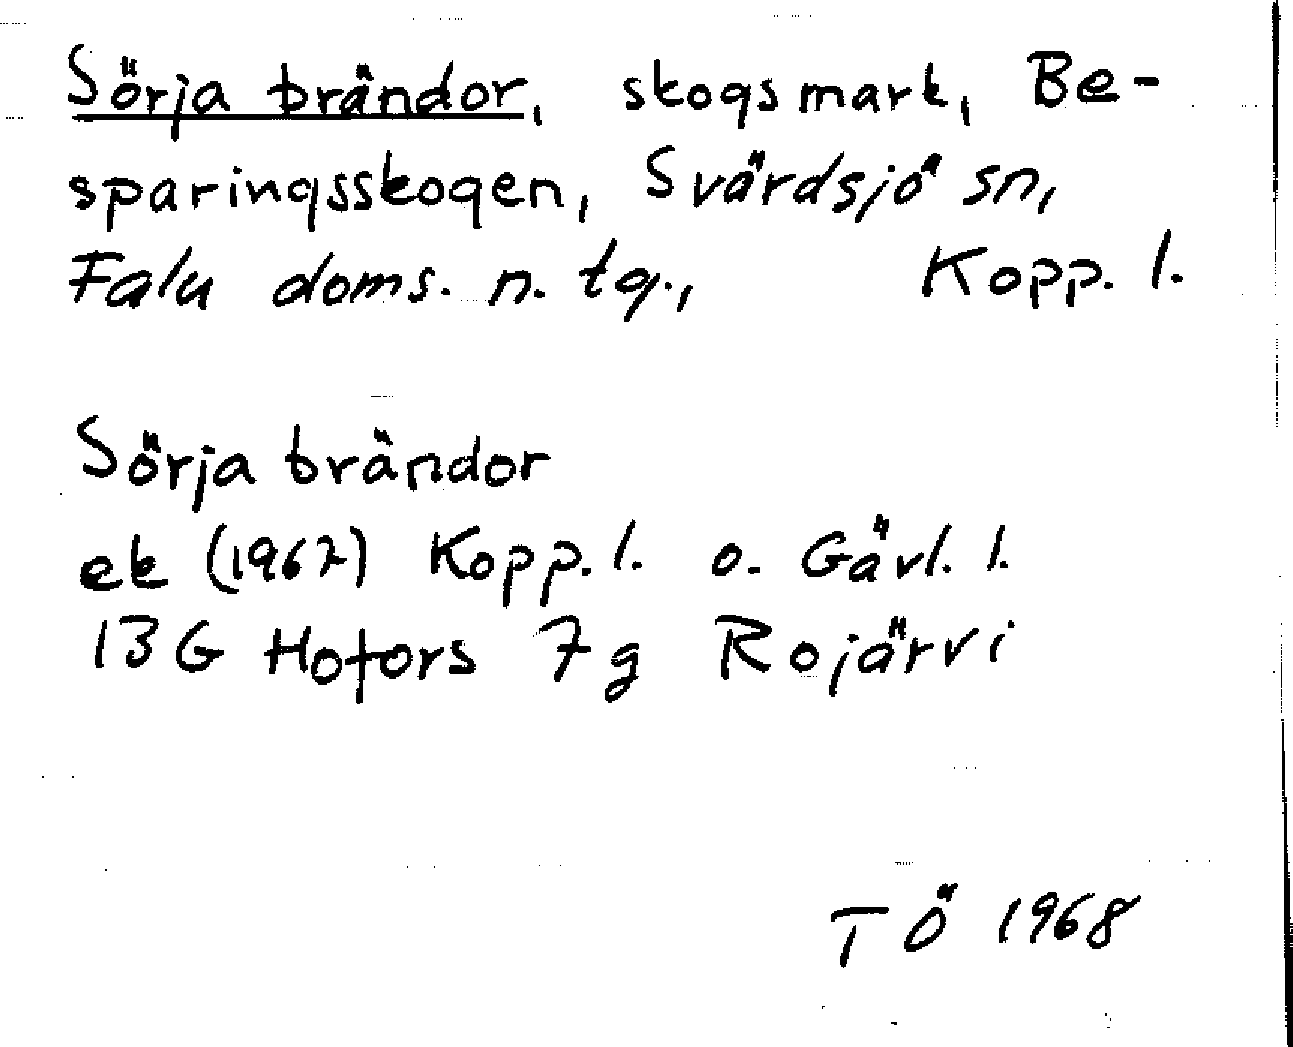 Sörja brändor, skogsmark, Be-
sparingsskogen, Svärdsjö sn,
Falu doms. n. tg., Kopp. l.
Sörja brändor
ek (1967) Kopp. l. o. Gävl. l.
13G Hofors 7g Rojärvi
TÖ 1968